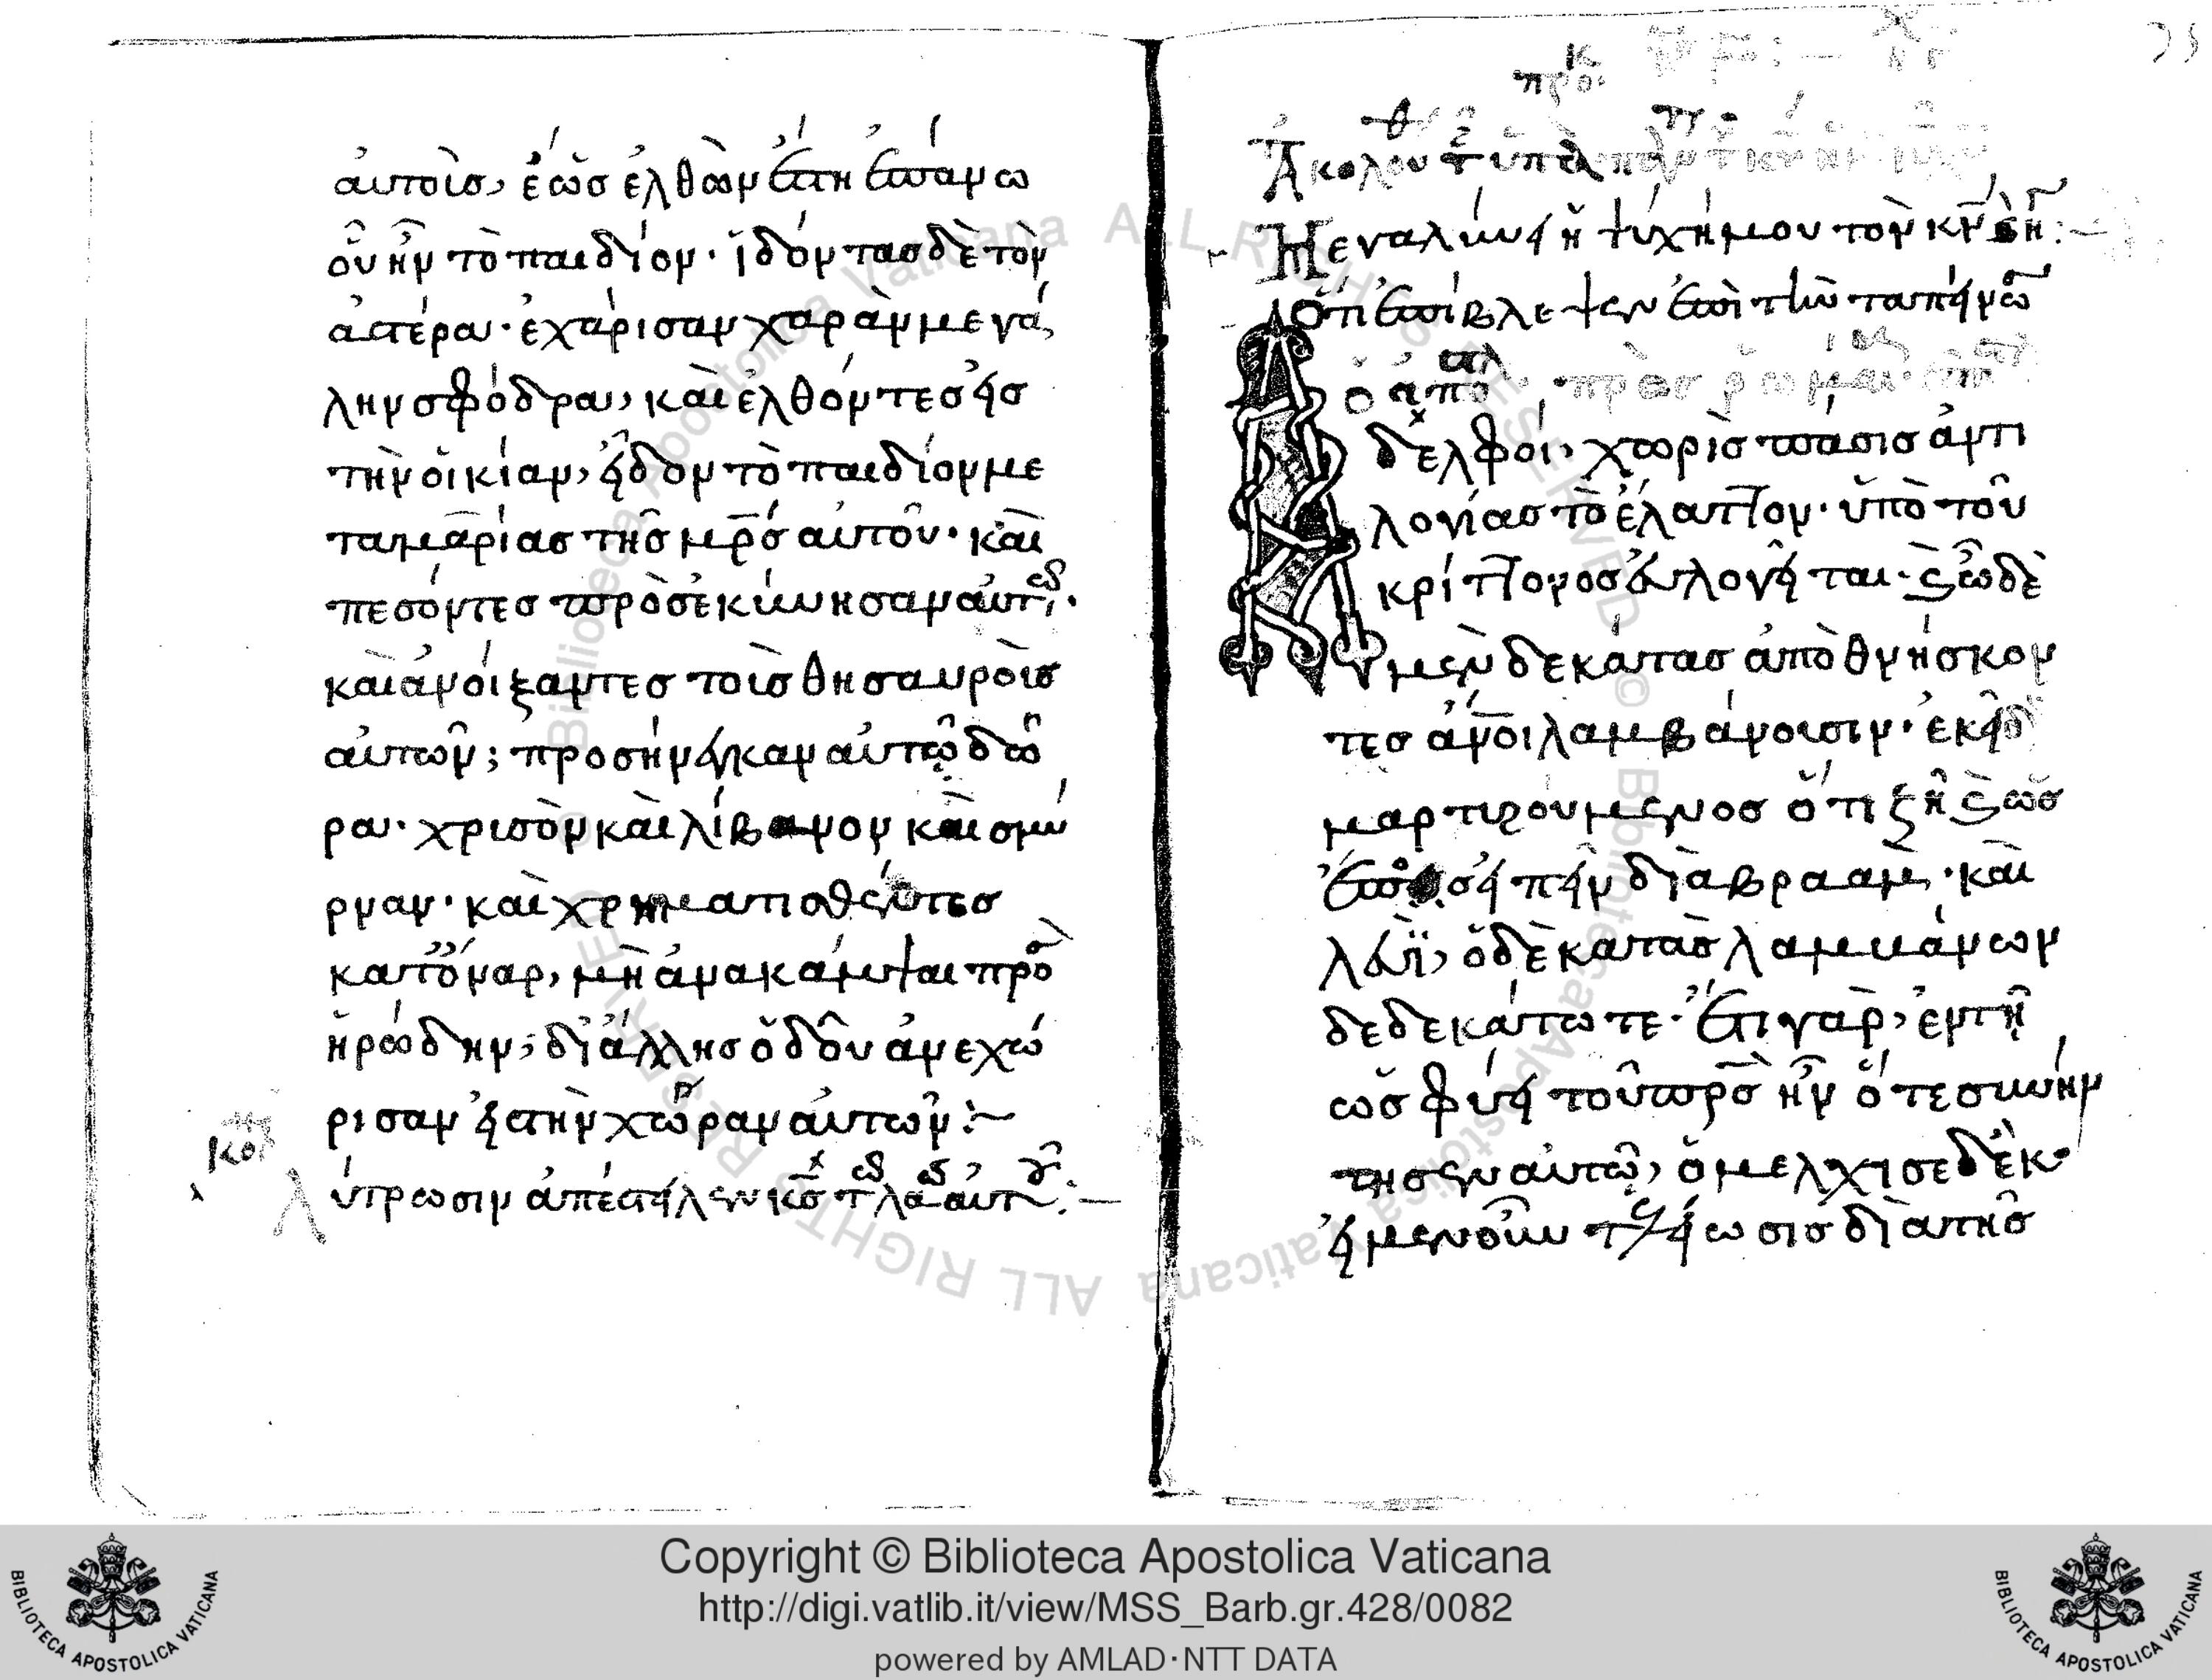 αὐτοὶσ, ἕωσ ἐλθὼν ἔστη ἐπάνω
οὗ ἦν τὸ παιδίον · ἰδόντασ δὲ τὸν
ἀστέρα · ἐχάρισαν χαρὰν μεγά
λην σφόδρα, καὶ ἐλθόντεσ εἰσ
τὴν οἰκίαν, εἶδον τὸ παιδίον με
τα μαρίασ τῆσ μρσ αὐτοῦ · καὶ
πεσόντεσ προσεκύνησαν αὐτῶ ·
καὶ ἀνοίξαντεσ τοὶσ θησαυροὶσ
αὐτῶν ; προσήνεγκαν αὐτῶ δῶ
ρα · χρισὸν καὶ λίβανον καὶ σμύ
ρναν · καὶ χρηματισθέντεσ
κατόναρ, μὴ ἀνακάμψαι προ
ἡρώδην, δι ἄλλησ ὁδοῦ ἀνεχώ
ρισαν εἰσ τὴν χώραν αὐτῶν :~
κοι
λύτρωσιν ἀπέστειλεν κσ τῶ λαῶ αὐτοῦ :—
προκ
Ἀκολου
Μεγαλύνει ἡ ψυχή μου τὸν κν
Ὅτι ἐπίβλεψεν ἐπὶ τὴν ταπείνω
ὁ ἀπόστολ πρὸσ
Ἀδελφοί, χωρὶσ πάσισ ἀντι
λογίασ τὸ ἔλαττον · ὑπὸ τοῦ
κρίττονοσ εὐλογεῖται · καὶ ὧδε
μὲν δεκάτασ ἀποθνήσκον
τεσ ἄνοι λαμβάνουσιν · ἐκεῖ δ
μαρτιρούμενοσ ὅτι ζῆ καὶ ὡσ
ἔποσ εἰπεῖν διὰβρααμ · καὶ
λευϊ, ὁ δεκάτασ λαμβάνων
δεδεκάτωτε · ἔτι γὰρ, ἐν τῆ
ὡσφύει τοῦ πρσ ἦν ὅτε σιωήν
τησεν αὐτῶ, ὁ μελχισεδέκ ·
εἰ μὲν οὖν τελείωσισ διὰ τῆσ
Copyright © Biblioteca Apostolica Vaticana
http://digi.vatlib.it/view/MSS_Barb.gr.428/0082
powered by AMLAD·NTT DATA
BIBLIOTECA APOSTOLICA VATICANA
BIBLIOTECA APOSTOLICA VATICANA